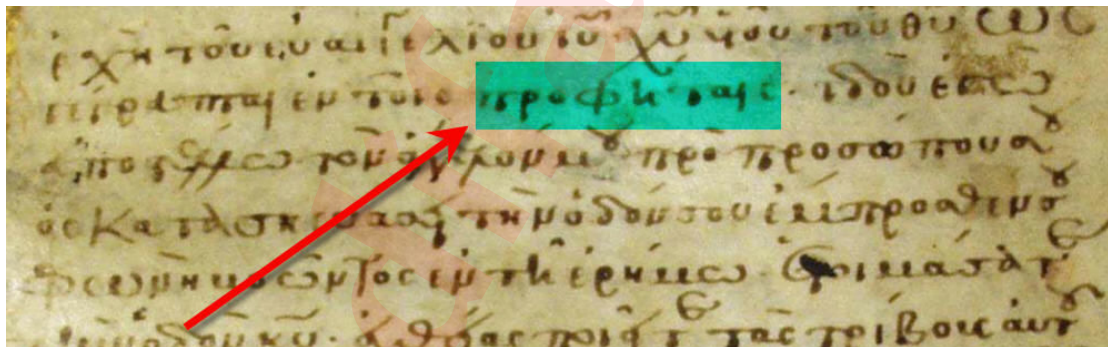 ἀρχὴ τοῦ εὐαγγελίου ἰυ χυ υἱοῦ τοῦ θυ ὡς
γέγραπται ἐν τοῖς προφήταις· ἰδοὺ ἐγὼ
ἀποστέλλω τὸν ἄγγελόν μου πρὸ προσώπου σου
ὃς κατασκευάσει τὴν ὁδόν σου ἔμπροσθέν σου
φωνὴ βοῶντος ἐν τῆ ἐρήμω· ἑτοιμάσατε
τὴν ὁδὸν κυ· εὐθείας ποιεῖτε τὰς τρίβους αὐτοῦ